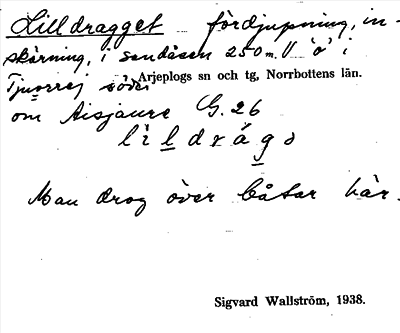 Lilldragget fördjupning, in-
skärning, i sandåsen 250m. V 'ö' i
Tjuorrej söder Arjeplogs sn och tg, Norrbottens län.
om Aisjaure G. 26
lìldrágə
Man drog över båtar här.
Sigvard Wallström, 1938.